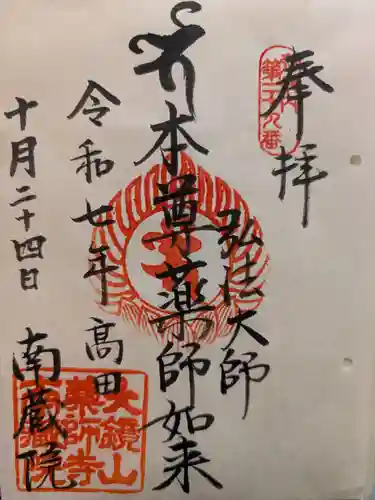 奉拝
弘法大師
本尊薬師如来
令和七年
十月二十四日
高田
南蔵院
大鏡山
薬師寺
南蔵院